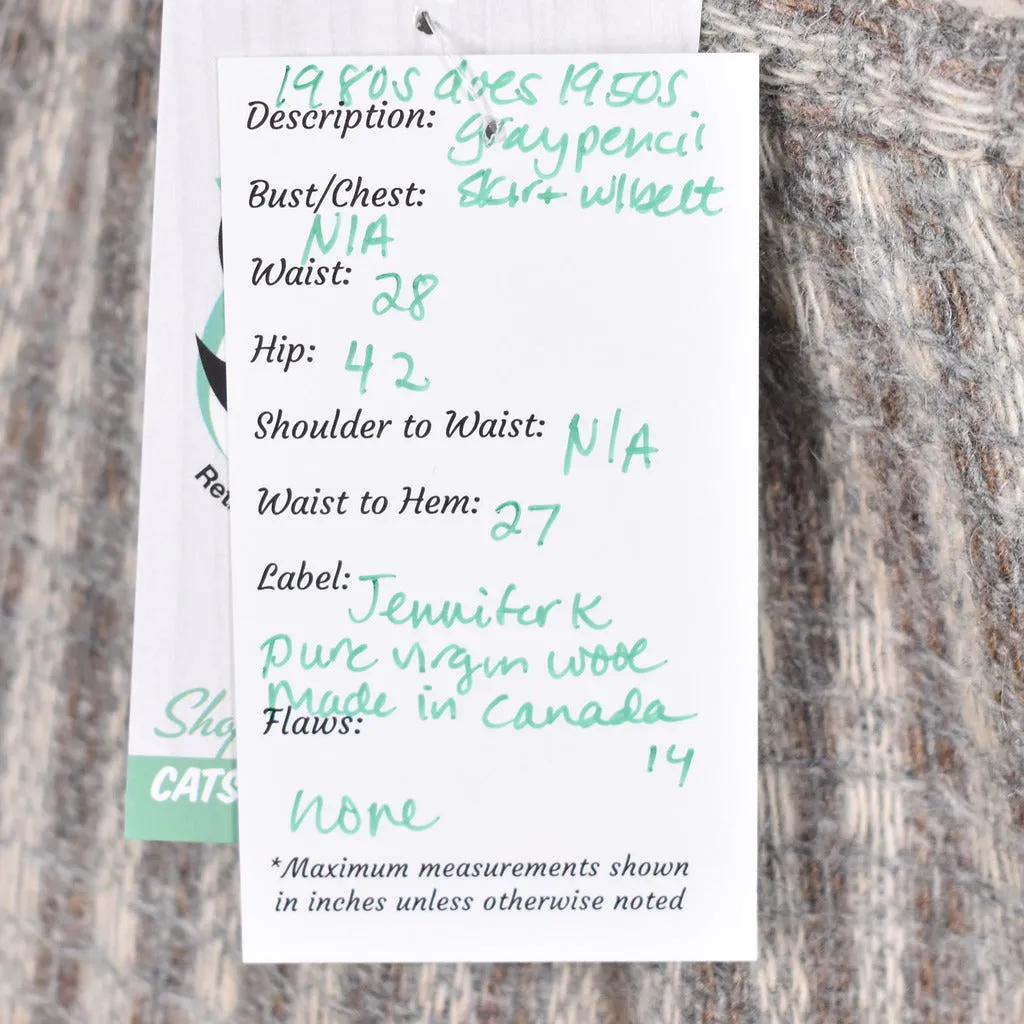 1980s does 1950s
Description: gray pencil
Bust/Chest: skirt w/belt
N/A
Waist: 28
Hip: 42
Shoulder to Waist: N/A
Waist to Hem: 27
Label: Jennifer K
pure virgin wool
Made in Canada
Flaws:
14
none
*Maximum measurements shown
in inches unless otherwise noted
CATS